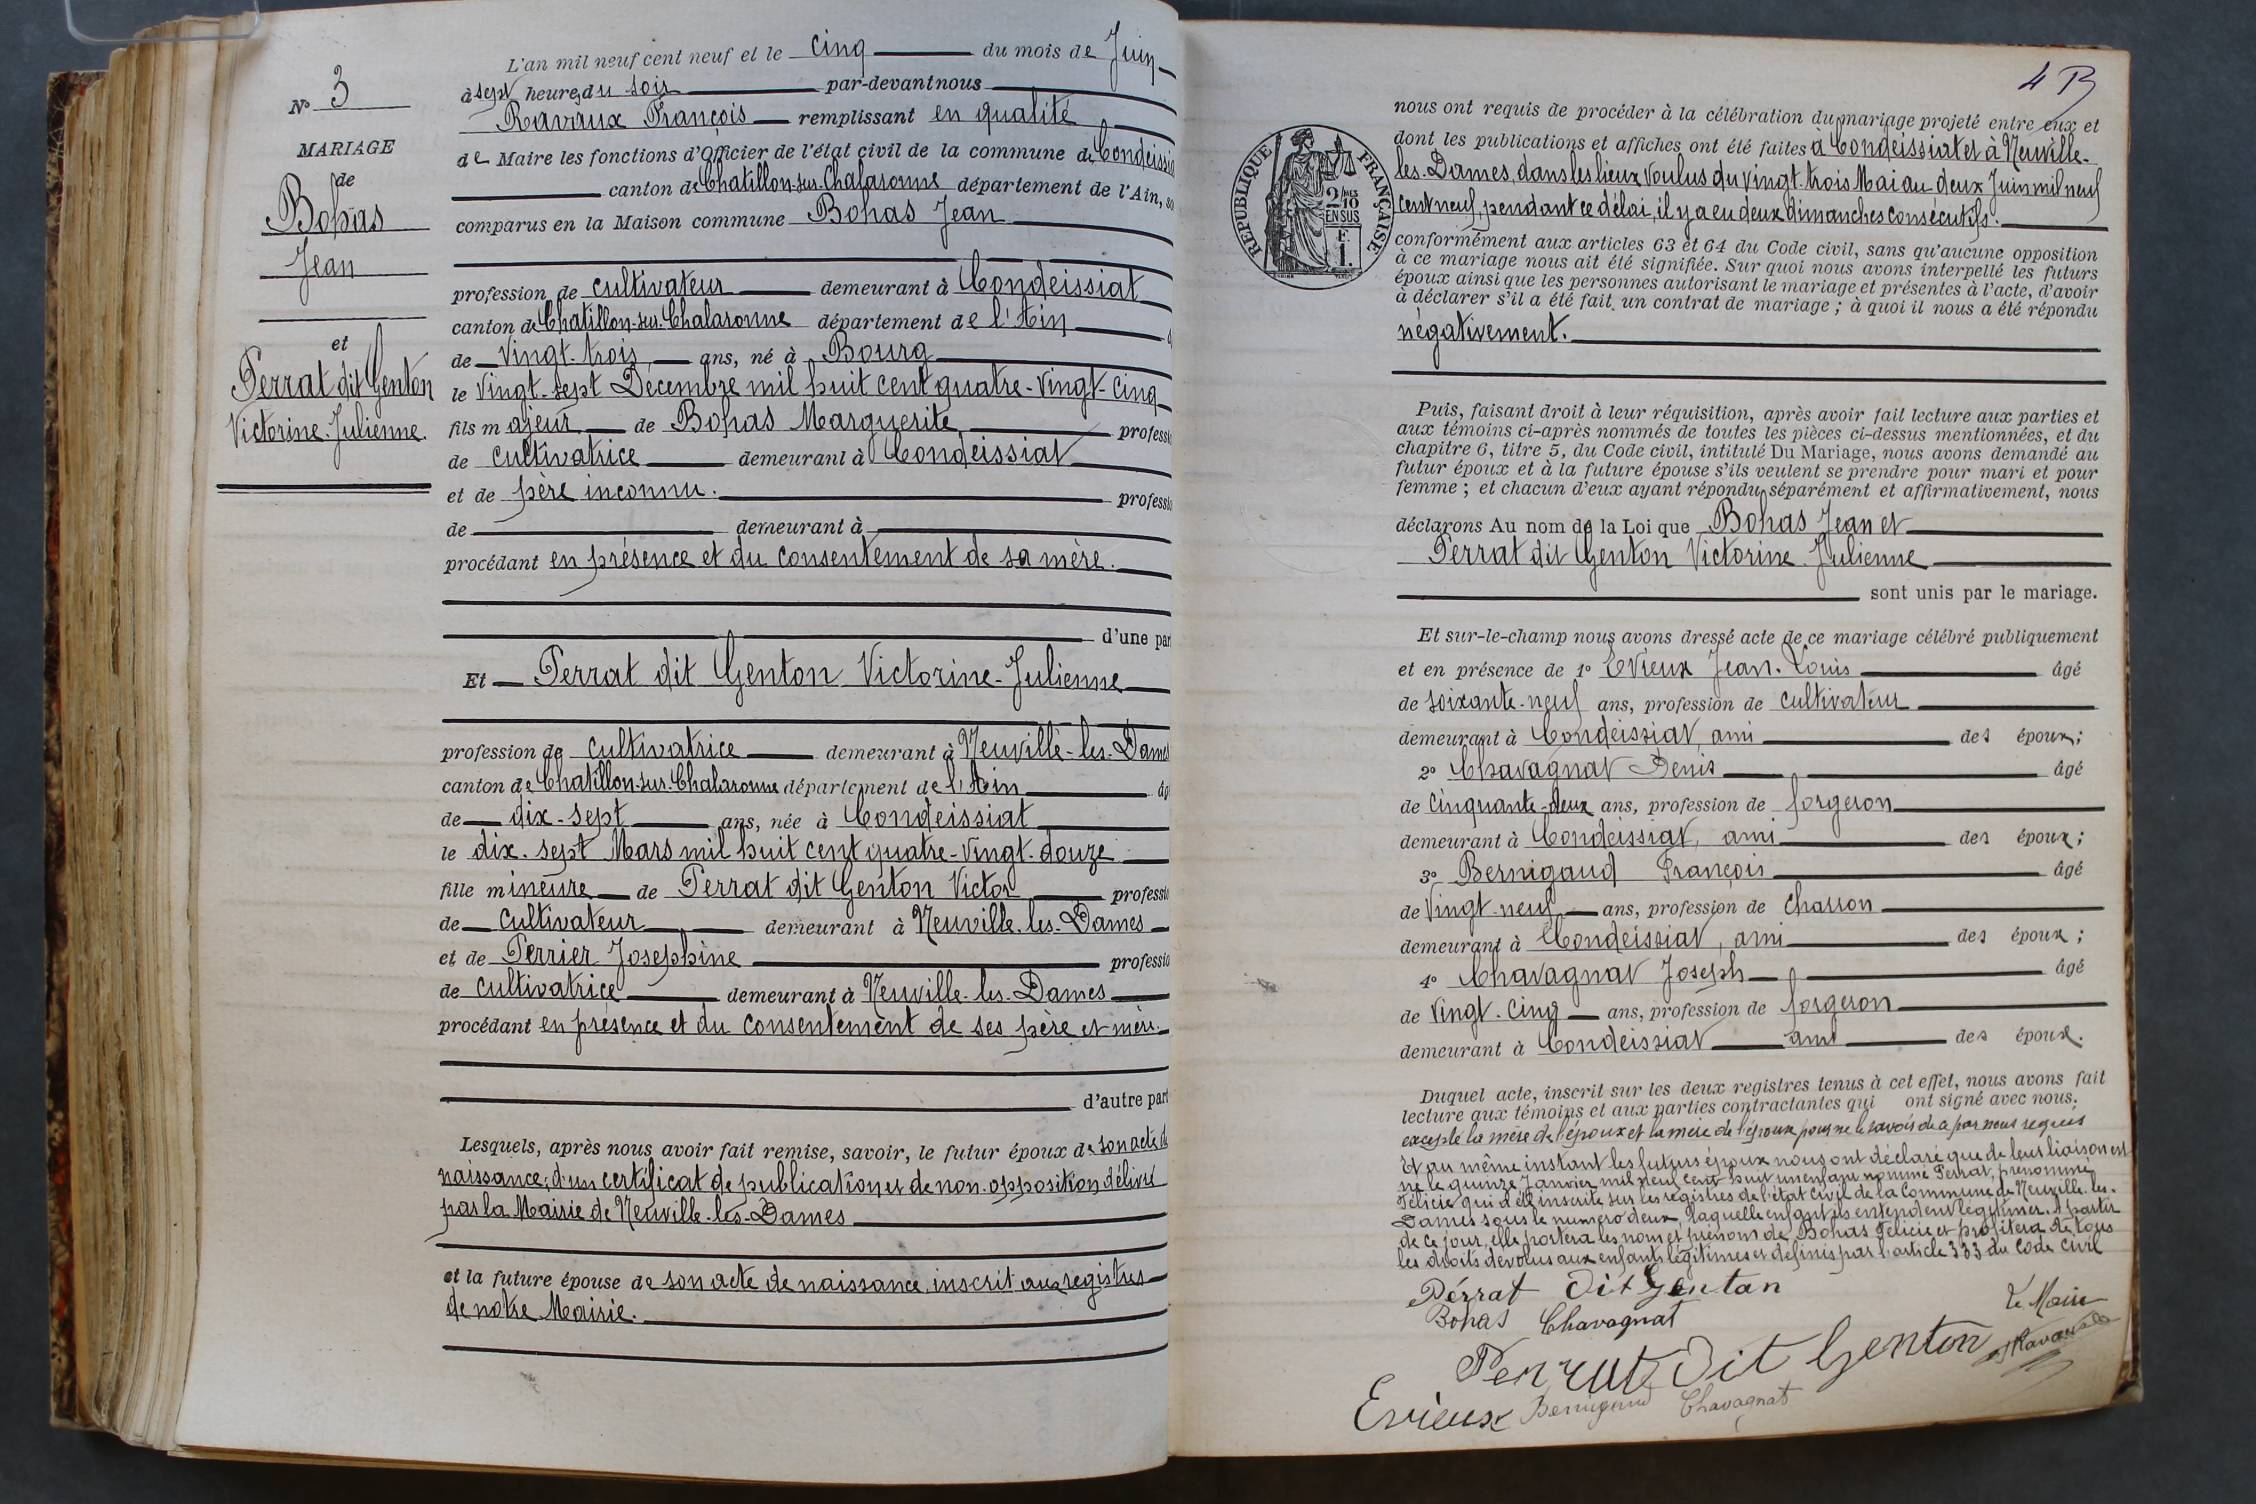 N° 3
MARIAGE
de
Bohas
Jean
et
Perrat dit Genton
Victorine-Julienne.
L'an mil neuf cent neuf et le cinq du mois de Juin
à sept heures du soir par-devant nous
Ravaux François remplissant en qualité
de Maire les fonctions d'Officier de l'état civil de la commune de Condeissiat
canton de Chatillon-sur-Chalaronne département de l'Ain, so
comparus en la Maison commune Bohas Jean
profession de cultivateur demeurant à Condeissiat
canton de Chatillon-sur-Chalaronne département de l'Ain
de vingt-trois ans, né à Bourg
le vingt-sept Décembre mil huit cent quatre-vingt-cinq
fils majeur de Bohas Marguerite professi
de cultivatrice demeurant à Condeissiat
et de père inconnu. professi
de demeurant à
procédant en présence et du consentement de sa mère.
d'une par
Et Perrat dit Genton Victorine-Julienne
profession de cultivatrice demeurant à Neuville-les-Dames
canton de Chatillon-sur-Chalaronne département de l'Ain âg
de dix-sept ans, née à Condeissiat
le dix-sept Mars mil huit cent quatre-vingt-douze
fille mineure de Perrat dit Genton Victor professi
de cultivateur demeurant à Neuville-les-Dames
et de Perrier Josephine professio
de cultivatrice demeurant à Neuville-les-Dames
procédant en présence et du consentement de ses père et mère.
d'autre part
Lesquels, après nous avoir fait remise, savoir, le futur époux de son acte de
naissance, d'un certificat de publication et de non-opposition délivré
par la Mairie de Neuville-les-Dames
et la future épouse de son acte de naissance inscrit aux registres
de notre Mairie.
4 B
RÉPUBLIQUE FRANÇAISE
2/10 MES
EN SUS
F.
1.
nous ont requis de procéder à la célébration du mariage projeté entre eux et
dont les publications et affiches ont été faites à Condeissiat et à Neuville-
les-Dames, dans les lieux voulus du vingt-trois Mai au deux Juin mil neuf
cent neuf, pendant ce délai, il y a eu deux dimanches consécutifs.
conformément aux articles 63 et 64 du Code civil, sans qu'aucune opposition
à ce mariage nous ait été signifiée. Sur quoi nous avons interpellé les futurs
époux ainsi que les personnes autorisant le mariage et présentes à l'acte, d'avoir
à déclarer s'il a été fait un contrat de mariage ; à quoi il nous a été répondu
négativement.
Puis, faisant droit à leur réquisition, après avoir fait lecture aux parties et
aux témoins ci-après nommés de toutes les pièces ci-dessus mentionnées, et du
chapitre 6, titre 5, du Code civil, intitulé Du Mariage, nous avons demandé au
futur époux et à la future épouse s'ils veulent se prendre pour mari et pour
femme ; et chacun d'eux ayant répondu séparément et affirmativement, nous
déclarons Au nom de la Loi que Bohas Jean et
Perrat dit Genton Victorine-Julienne
sont unis par le mariage.
Et sur-le-champ nous avons dressé acte de ce mariage célébré publiquement
et en présence de 1° Evieux Jean-Louis âgé
de soixante-neuf ans, profession de cultivateur
demeurant à Condeissiat, ami des époux ;
2° Chavagnat Denis âgé
de cinquante-deux ans, profession de forgeron
demeurant à Condeissiat, ami des époux ;
3° Bernigaud François âgé
de vingt-neuf ans, profession de charron
demeurant à Condeissiat, ami des époux ;
4° Chavagnat Joseph âgé
de vingt-cinq ans, profession de forgeron
demeurant à Condeissiat ami des époux.
Duquel acte, inscrit sur les deux registres tenus à cet effet, nous avons fait
lecture aux témoins et aux parties contractantes qui ont signé avec nous,
excepté la mère de l'époux et la mère de l'épouse pour ne le savoir de ce par nous requis
Et au même instant les futurs époux nous ont déclaré que de leur liaison est
né le quinze Janvier mil neuf cent huit un enfant nommé Perrat, prénommé
Félicie qui a été inscrite sur les registres de l'état civil de la Commune de Neuville-les-
Dames sous le numéro deux, laquelle enfant ils entendent légitimer. A partir
de ce jour, elle portera les nom et prénom de Bohas Félicie et profitera de tous
les droits dévolus aux enfants légitimes et définis par l'article 333 du Code Civil
Pérrat Dit Gentan
Bohas Chavagnat
Le Maire
Perrat Dit Genton Ravaux
Evieux Bernigaud Chavagnat